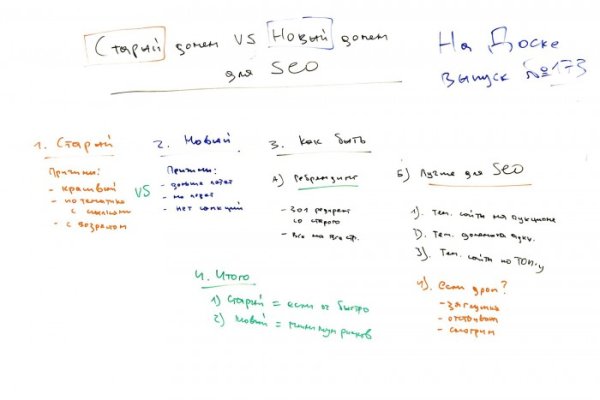 Старый домен VS Новый домен
для SEO
На Доске
выпуск №173
1. Старый
Причины:
- красивый
- по тематике
с ссылками
- с возрастом
VS
2. Новый
Причины:
- дольше
- нет санкций
3. Как быть
А) Ребрендинг
- 301 редирект
со старого
- Все на все стр.
Б) Лучше для SEO
1). Тем. сайты на аукционе
2). Тем. домены
3). Тем. сайты по ТОП-у
4). если дроп?
- заглушка
- отстояться
- смотрим
4. Итого
1) Старый = если ок быстро
2) Новый = минимум рисков